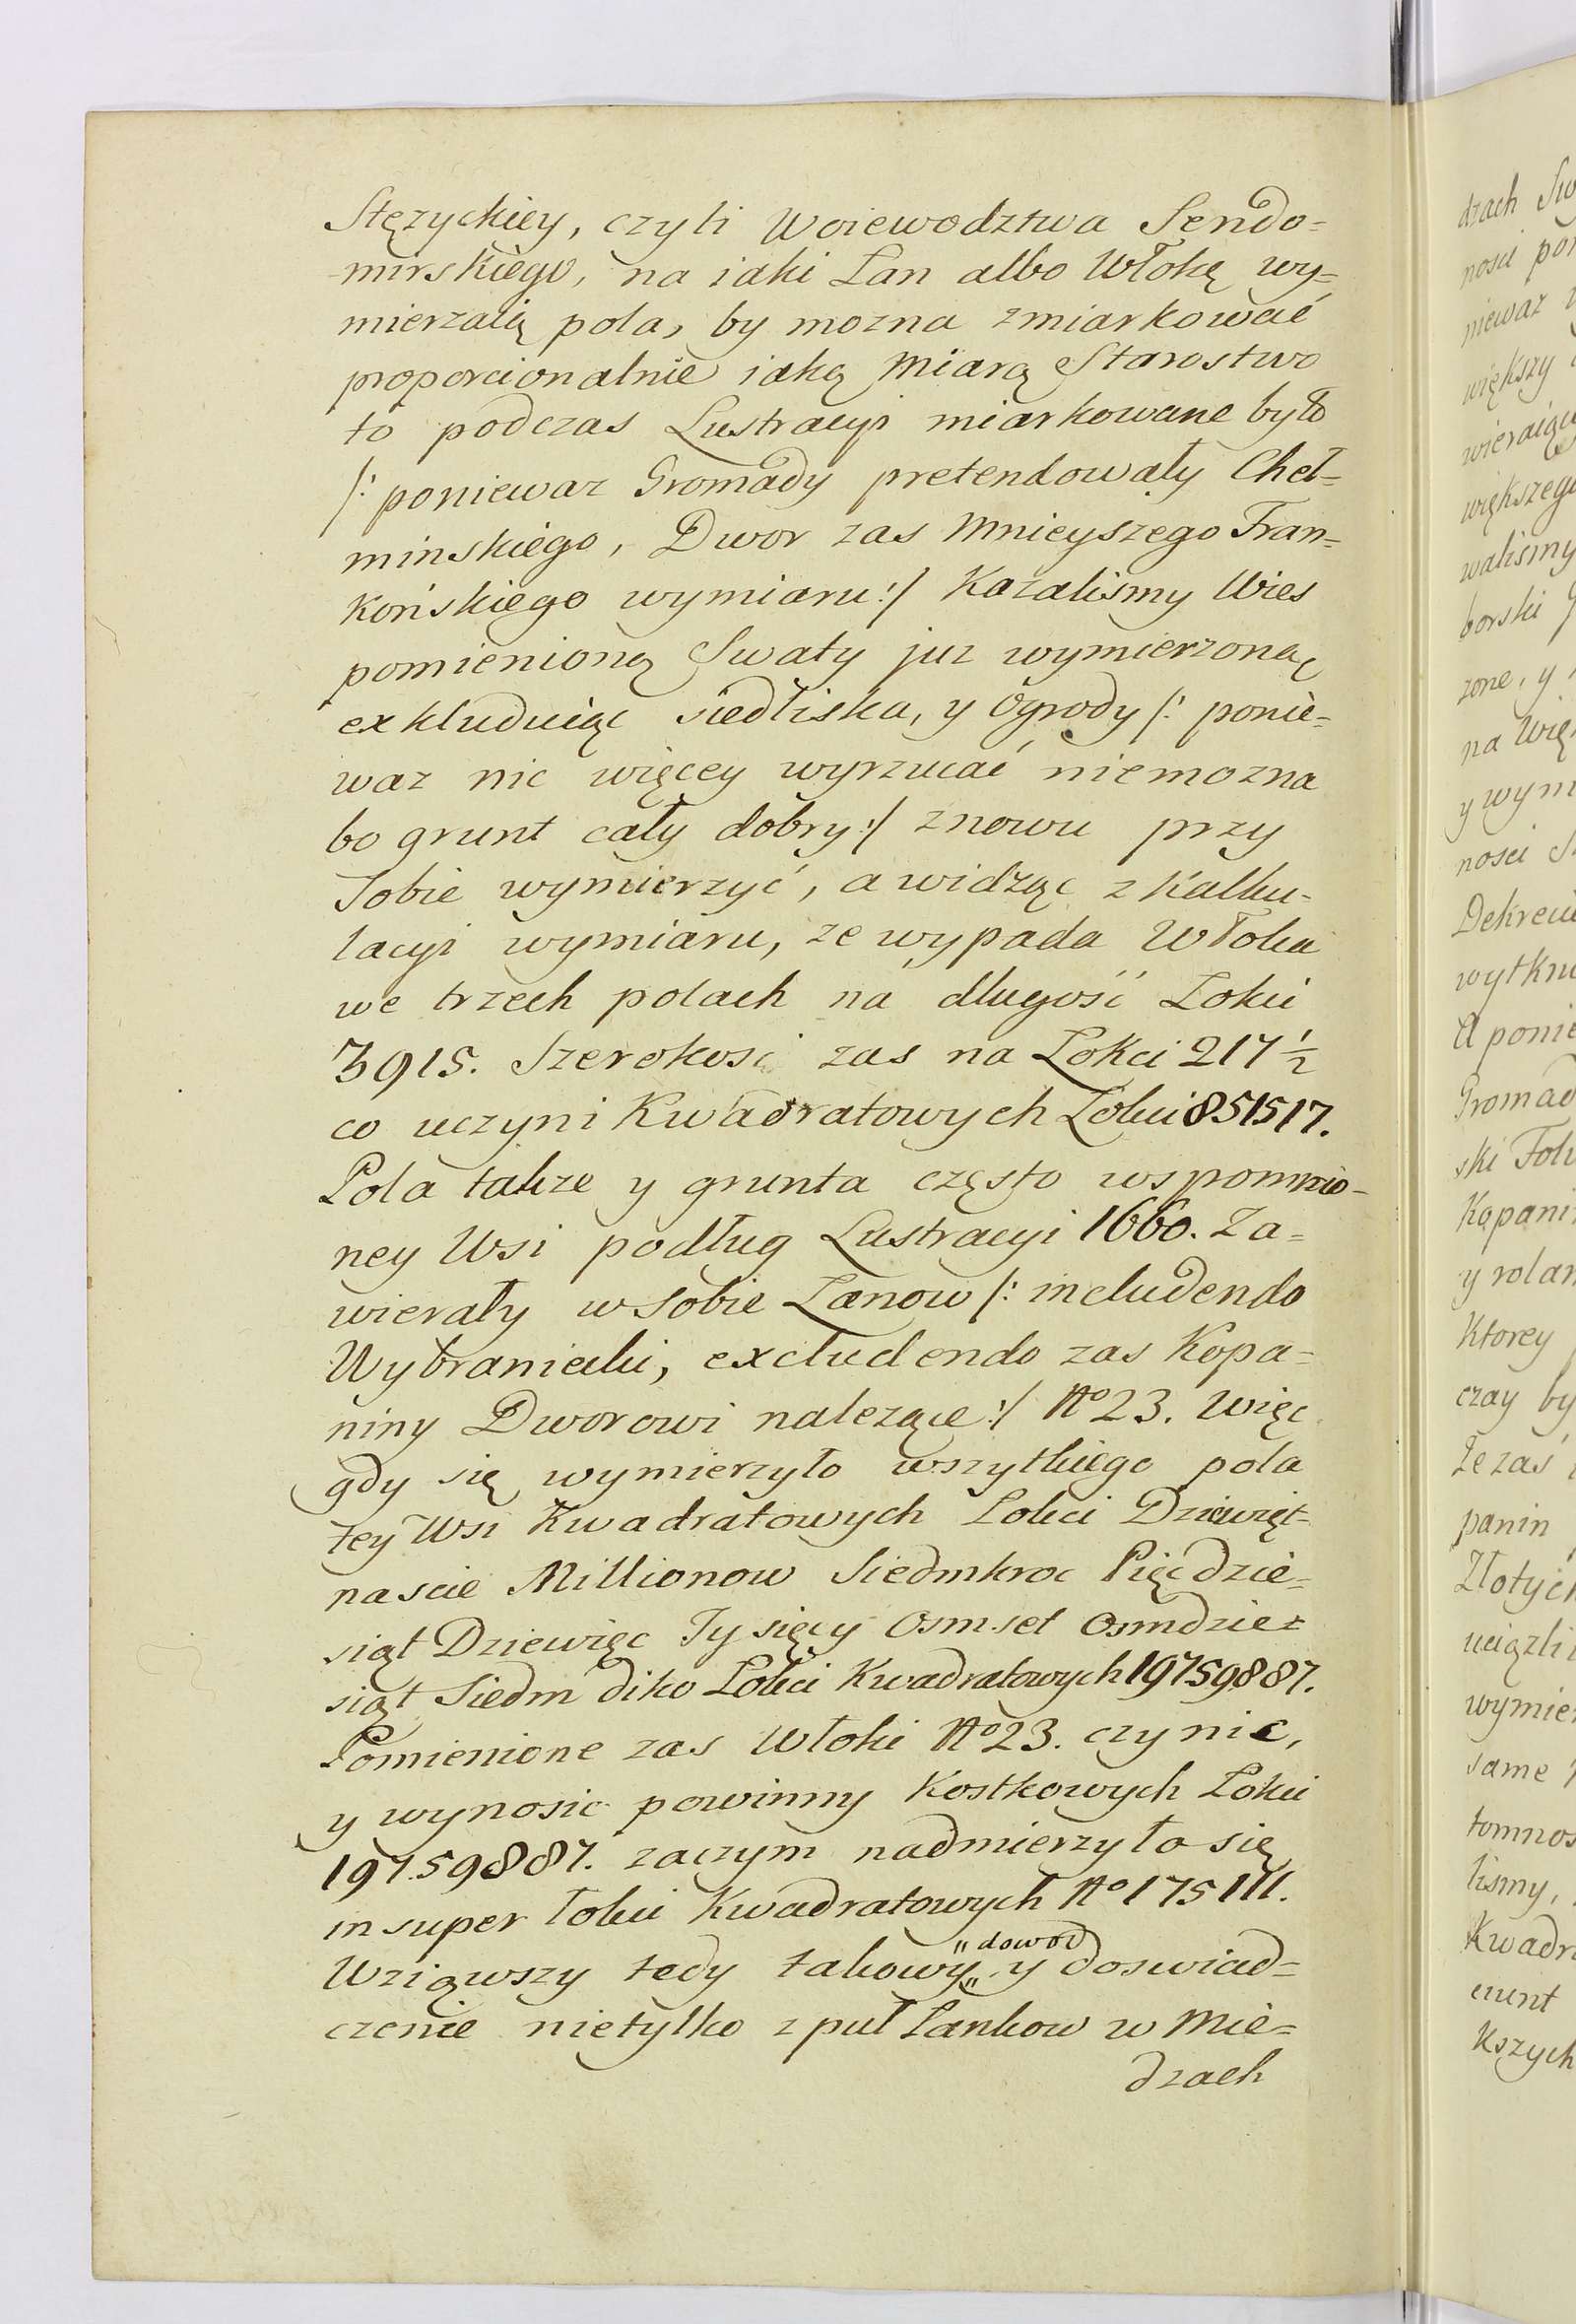 Stęzyckiey, czyli Woiewodztwa Sendo=
mirskiego, na iaki Lan albo Włokę wy=
mierzaią pola, by mozna zmiarkować
proporcionalnie iaką Miarą Starostwo
to podczas Lustracyi miarkowane było
/: poniewaz Gromady pretendowały Cheł=
minskiego, Dwor zas Mnieyszego Fran=
końskiego wymiaru :/ Kazalismy Wies
pomienioną Swaty juz wymierzoną
exkluduiąc siedliska, y Ogrody /: ponie=
waz nic więcey wyrzucać niemozna
bo grunt cały dobry :/ znowu przy
Sobie wymierzyć, a widząc z Kalku=
lacyi wymiaru, ze wypada Włoka
we trzech polach na długość Łokci
3915. Szerokosi zas na Łokci 217 1/2
co uczyni Kwadratowych Łokci 851517.
Pola takze y grunta często wspomnio=
ney Wsi podług Lustracyi 1660. Za=
wierały w sobie Łanow /: includendo
Wybraniecki, excludendo zas Kopa=
niny Dworowi nalezące :/ No 23. Więc
gdy się wymierzyło wszytkiego pola
tey Wsi Kwadratowych Łokci Dziewięt=
nascie Millionow Siedmkroc Pięcdzie=
siąt Dziewięc Tysięcy Osmset Osmdzie=
siąt Siedm diko Łokci Kwadratowych 19759887.
Pomienione zas Włoki No 23. czynic,
y wynosic powinny Kostkowych Łokci
19759887. zaczym nadmierzyło się
insuper łokci Kwadratowych No 175111.
Wziąwszy tedy takowy " dowod " y doswiad=
czenie nietylko z puł Łankow w Mie=
dzach